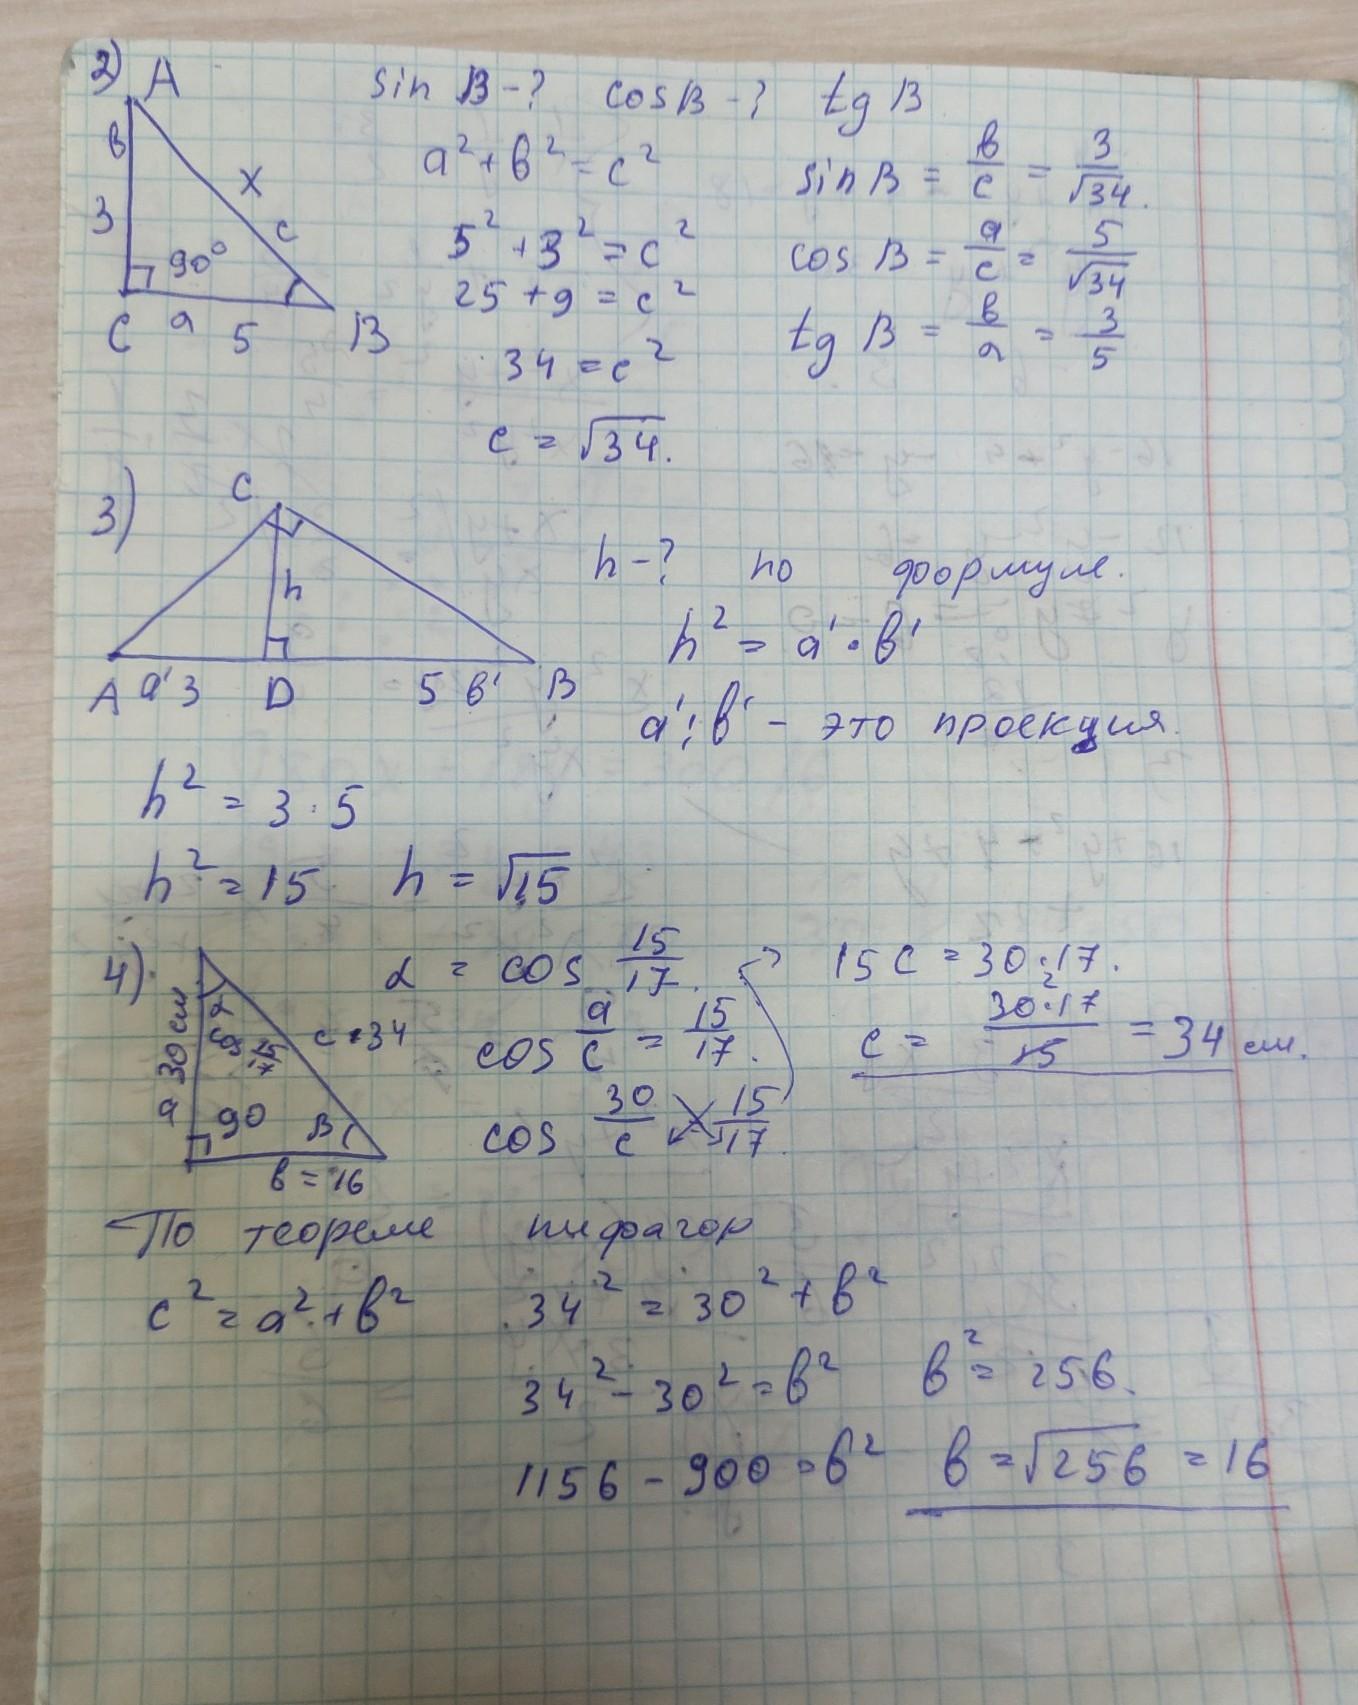 2) A sin B-? cosB-? tg B
в 3 x c 90° C a 5 B
a² + в² = c²
5² + 3² = c²
25 + 9 = c²
34 = c²
c = √34.
sin B = в/c = 3/√34.
cos B = a/c = 5/√34
tg B = в/a = 3/5
3) C h A a' 3 D 5 в' B
h-? по формуле.
h² = a' · в'
a' ; в' - это проекция.
h² = 3 · 5
h² = 15 h = √15
4) a 30 см α cos 15/17 c = 34 90 B в = 16
α = cos 15/17.
cos a/c = 15/17.
cos 30/c 15/17.
15 c = 30 · 17.
c = 30·17/15 = 34 см.
2
По теореме пифагор
c² = a² + в² 34² = 30² + в²
34² - 30² = в² в² = 256.
1156 - 900 = в² в = √256 = 16